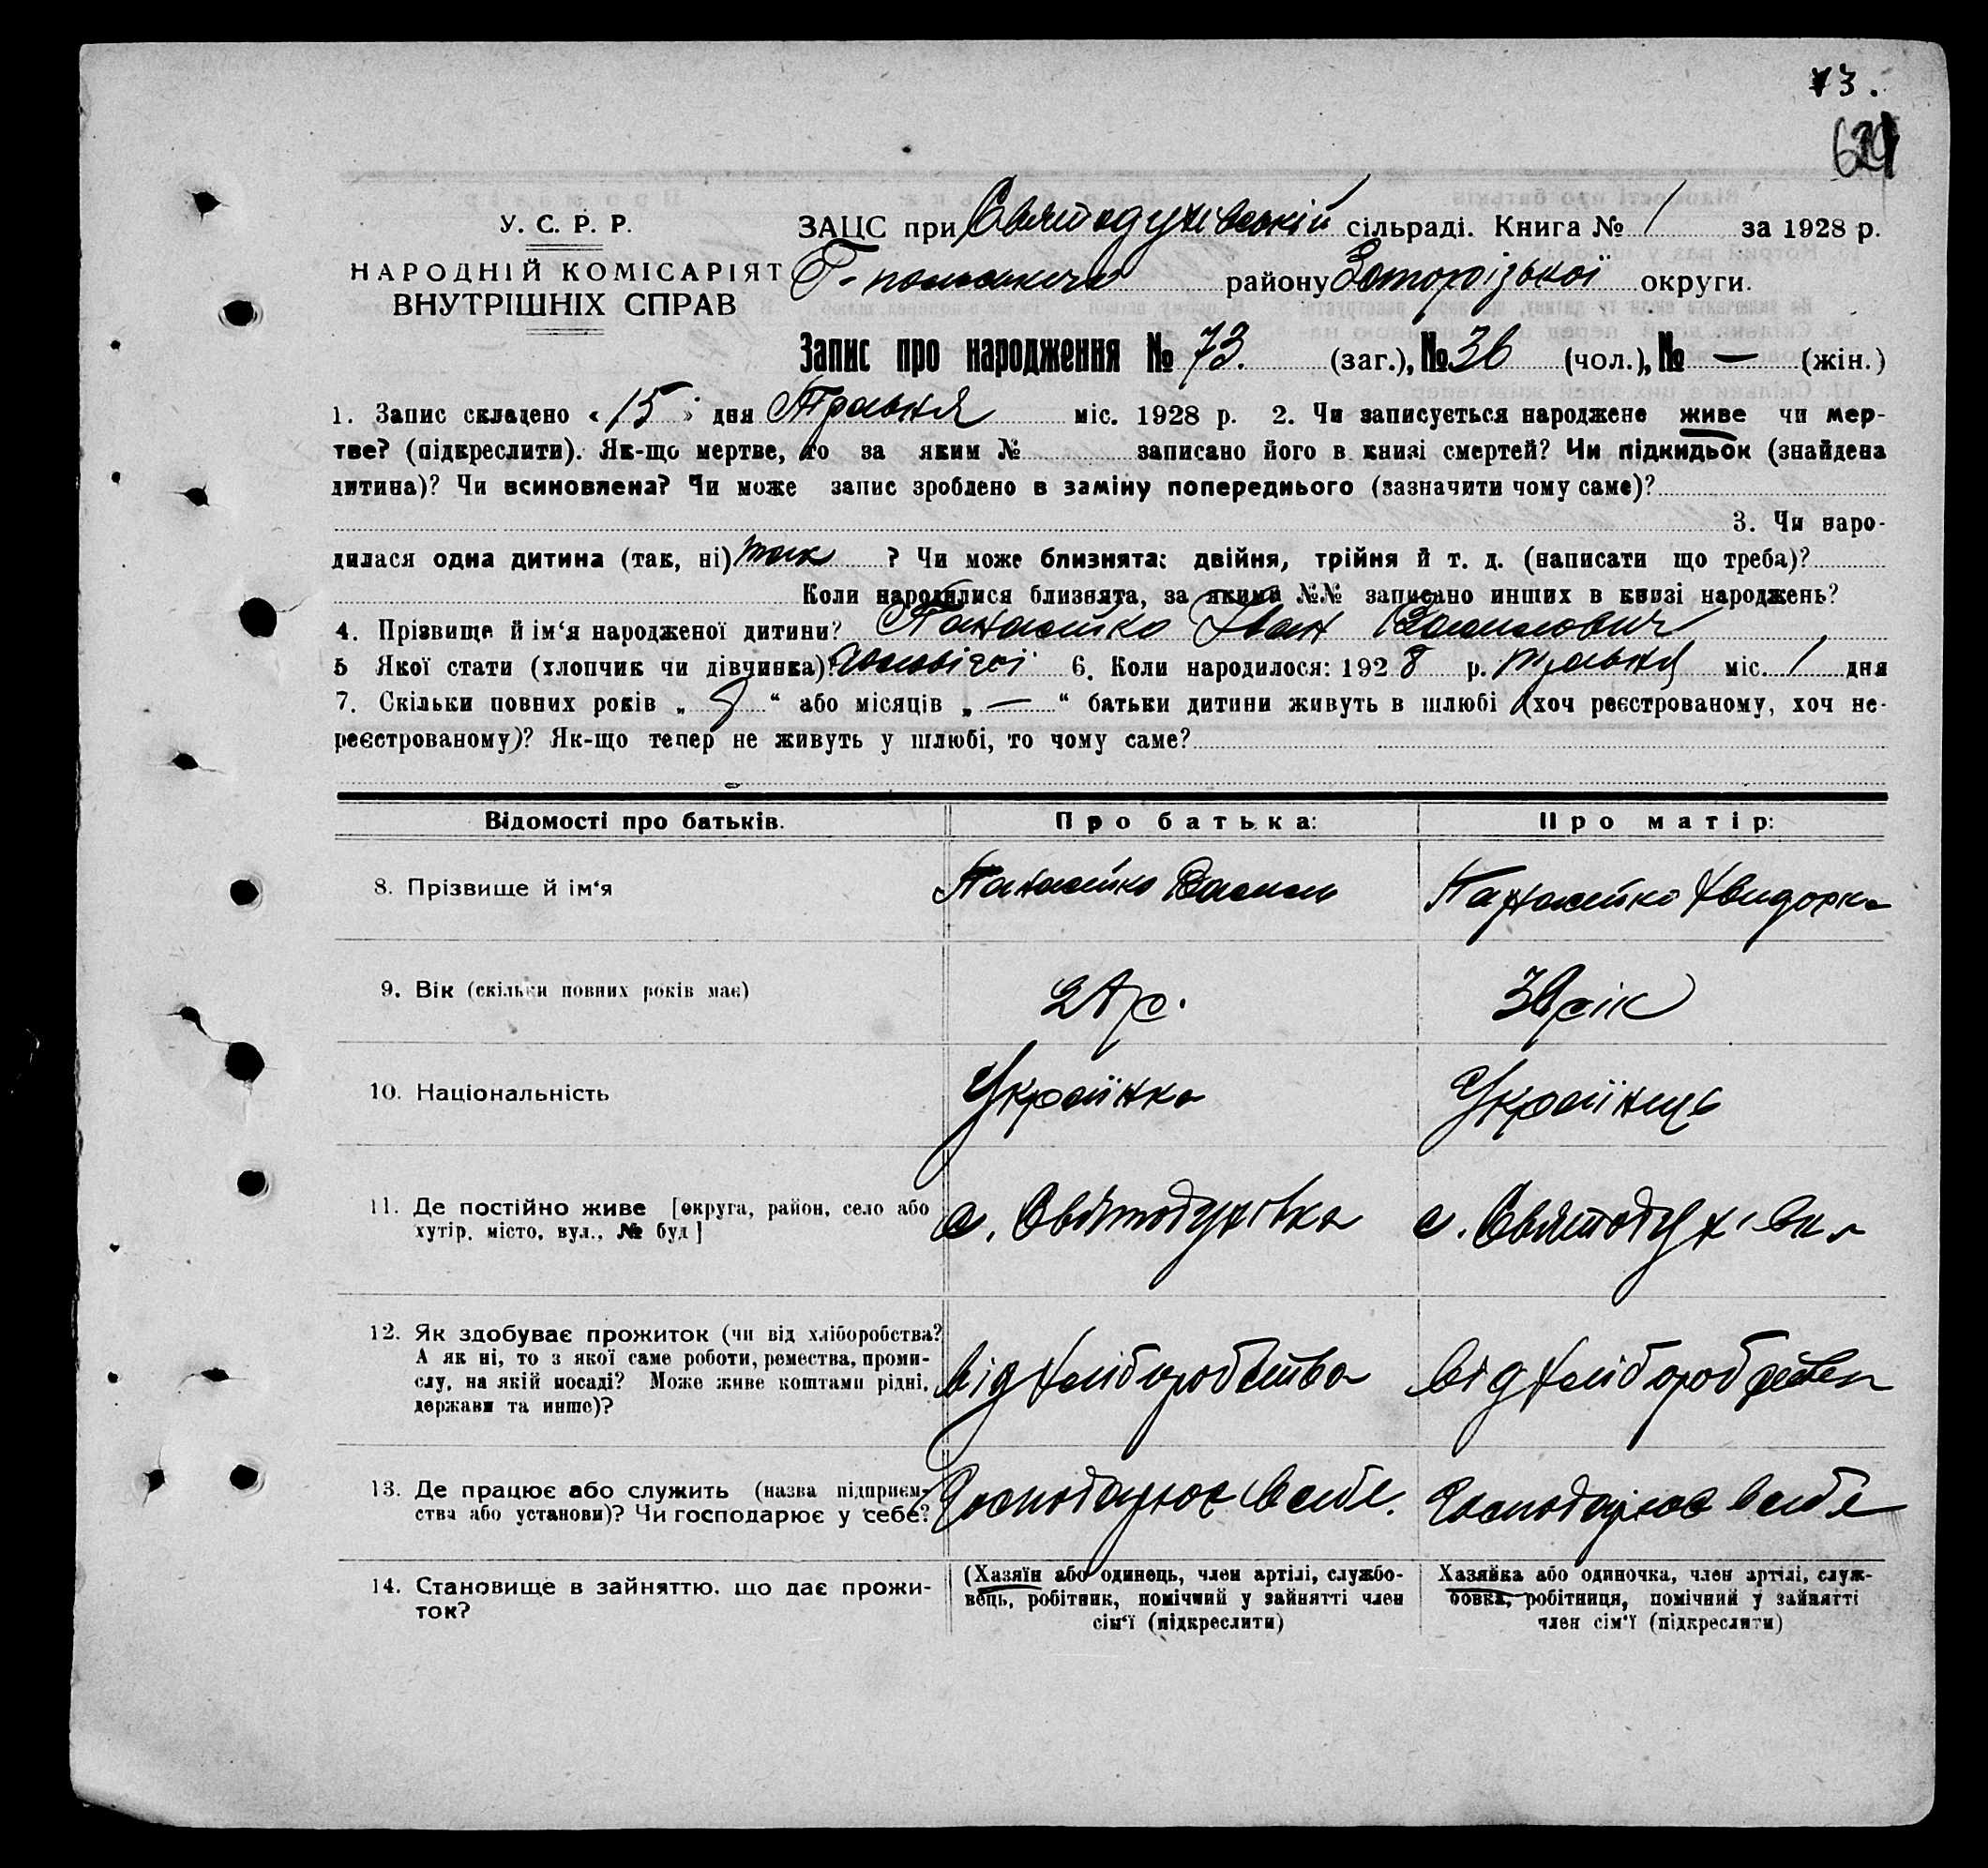 73.
У. С. Р. Р.
НАРОДНІЙ КОМІСАРІЯТ
ВНУТРІШНІХ СПРАВ
ЗАЦС при Святодухівській сільраді. Книга № 1 за 1928 р.
району Запорізької округи.
Запис про народження № 73. (заг.), № 36 (чол.), № — (жін.)
1. Запис складено « 15 » дня Травня міс. 1928 р. 2. Чи записується народжене живе чи мер-
тве? (підкреслити). Як-що мертве, то за яким № записано його в книзі смертей? Чи підкидьок (знайдена
дитина)? Чи всиновлена? Чи може запис зроблено в заміну попереднього (зазначити чому саме)?
3. Чи наро-
дилася одна дитина (так, ні) так ? Чи може близнята: двійня, трійня й т. д. (написати що треба)?
Коли народилися близнята, за якими №№ записано инших в книзі народжень?
4. Прізвище й ім‘я народженої дитини? Панасейко Іван Васильович
5 Якої стати (хлопчик чи дівчинка)? Чоловічої 6. Коли народилося: 1928 р. травня міс. 1 дня
7. Скільки повних років „ “ або місяців „ — “ батьки дитини живуть в шлюбі (хоч реєстрованому, хоч не-
реєстрованому)? Як-що тепер не живуть у шлюбі, то чому саме?
Відомості про батьків. Про батька: Про матір:
8. Прізвище й ім‘я Панасейко Василь Панасейко Хвидорка
9. Вік (скільки повних років має) р. рік
10. Національність Українка Українець
11. Де постійно живе [округа, район, село або
хутір, місто, вул., № буд] с. Святодухівка с. Святодухівка
12. Як здобуває прожиток (чи від хліборобства?
А як ні, то з якої саме роботи, ремества, проми-
слу, на якій посаді? Може живе коштами рідні,
держави та инше)? від хліборобства від хліборобства
13. Де працює або служить (назва підприєм-
ства або установи)? Чи господарює у себе? Господарює в себе. Господарює в себе
14. Становище в зайняттю, що дає прожи-
ток?
(Хазяїн або одинець, член артілі, службо-
вець, робітник, помічний у зайнятті член
сім‘ї (підкреслити)
Хазяйка або одиночка, член артілі, служ-
бовка, робітниця, помічний у зайнятті
член сім‘ї (підкреслити)